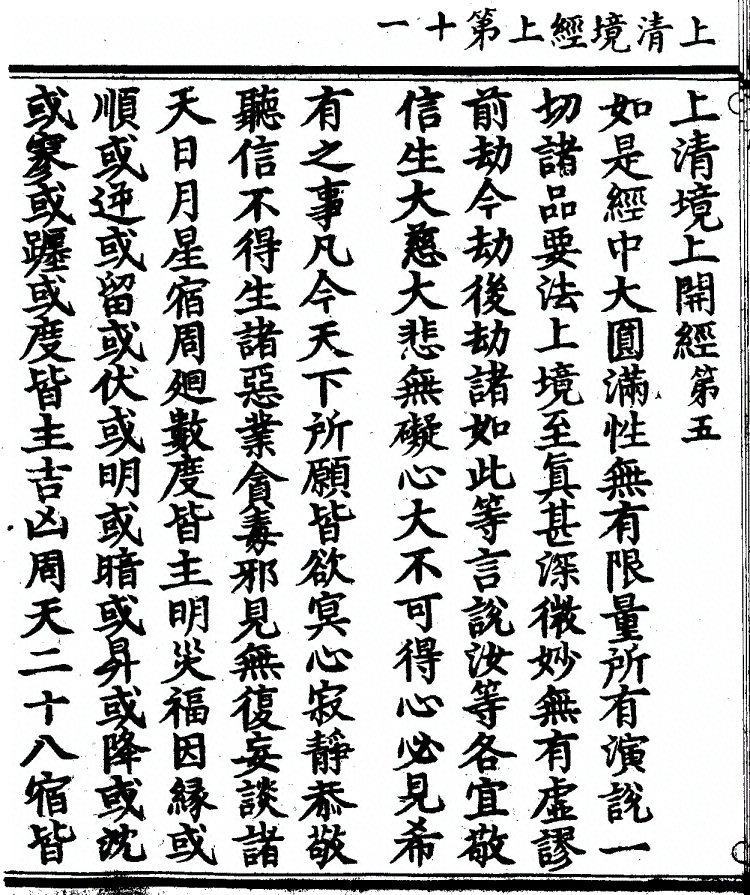 上清境經上第十一
上清境上開經第五
如是經中大圓滿性無有限量所有演說一
切諸品要法上境至真甚深微妙無有虛謬
前劫今劫後劫諸如此等言說汝等各宜敬
信生大慈大悲無礙心大不可得心必見希
有之事凡今天下所願皆欲冥心寂靜恭敬
聽信不得生諸惡業貪毒邪見無復妄談諸
天日月星宿周廻數度皆主明災福因緣或
順或逆或留或伏或明或暗或昇或降或沈
或寥或躔或度皆主吉凶周天二十八宿皆